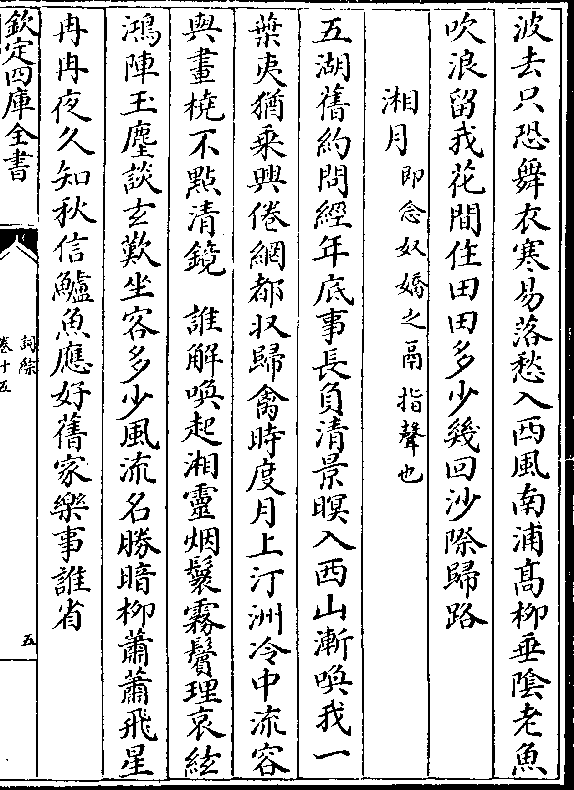 波去只恐舞衣寒易落愁入西風南浦髙柳垂隂老魚
吹浪留我花間住田田多少幾回沙際歸路
湘月即念奴嬌之鬲指聲也
五湖舊約問經年底事長負清景暝入西山漸喚我一
葉夷猶乗興倦網都収歸禽時度月上汀洲冷中流容
與畫橈不點清鏡　誰解喚起湘靈烟鬟霧鬢理哀絃
鴻陣玉麈談玄歎坐客多少風流名勝暗柳蕭蕭飛星
冉冉夜久知秋信鱸魚應好舊家樂事誰省
欽定四庫全書
詞綜
卷十五
五